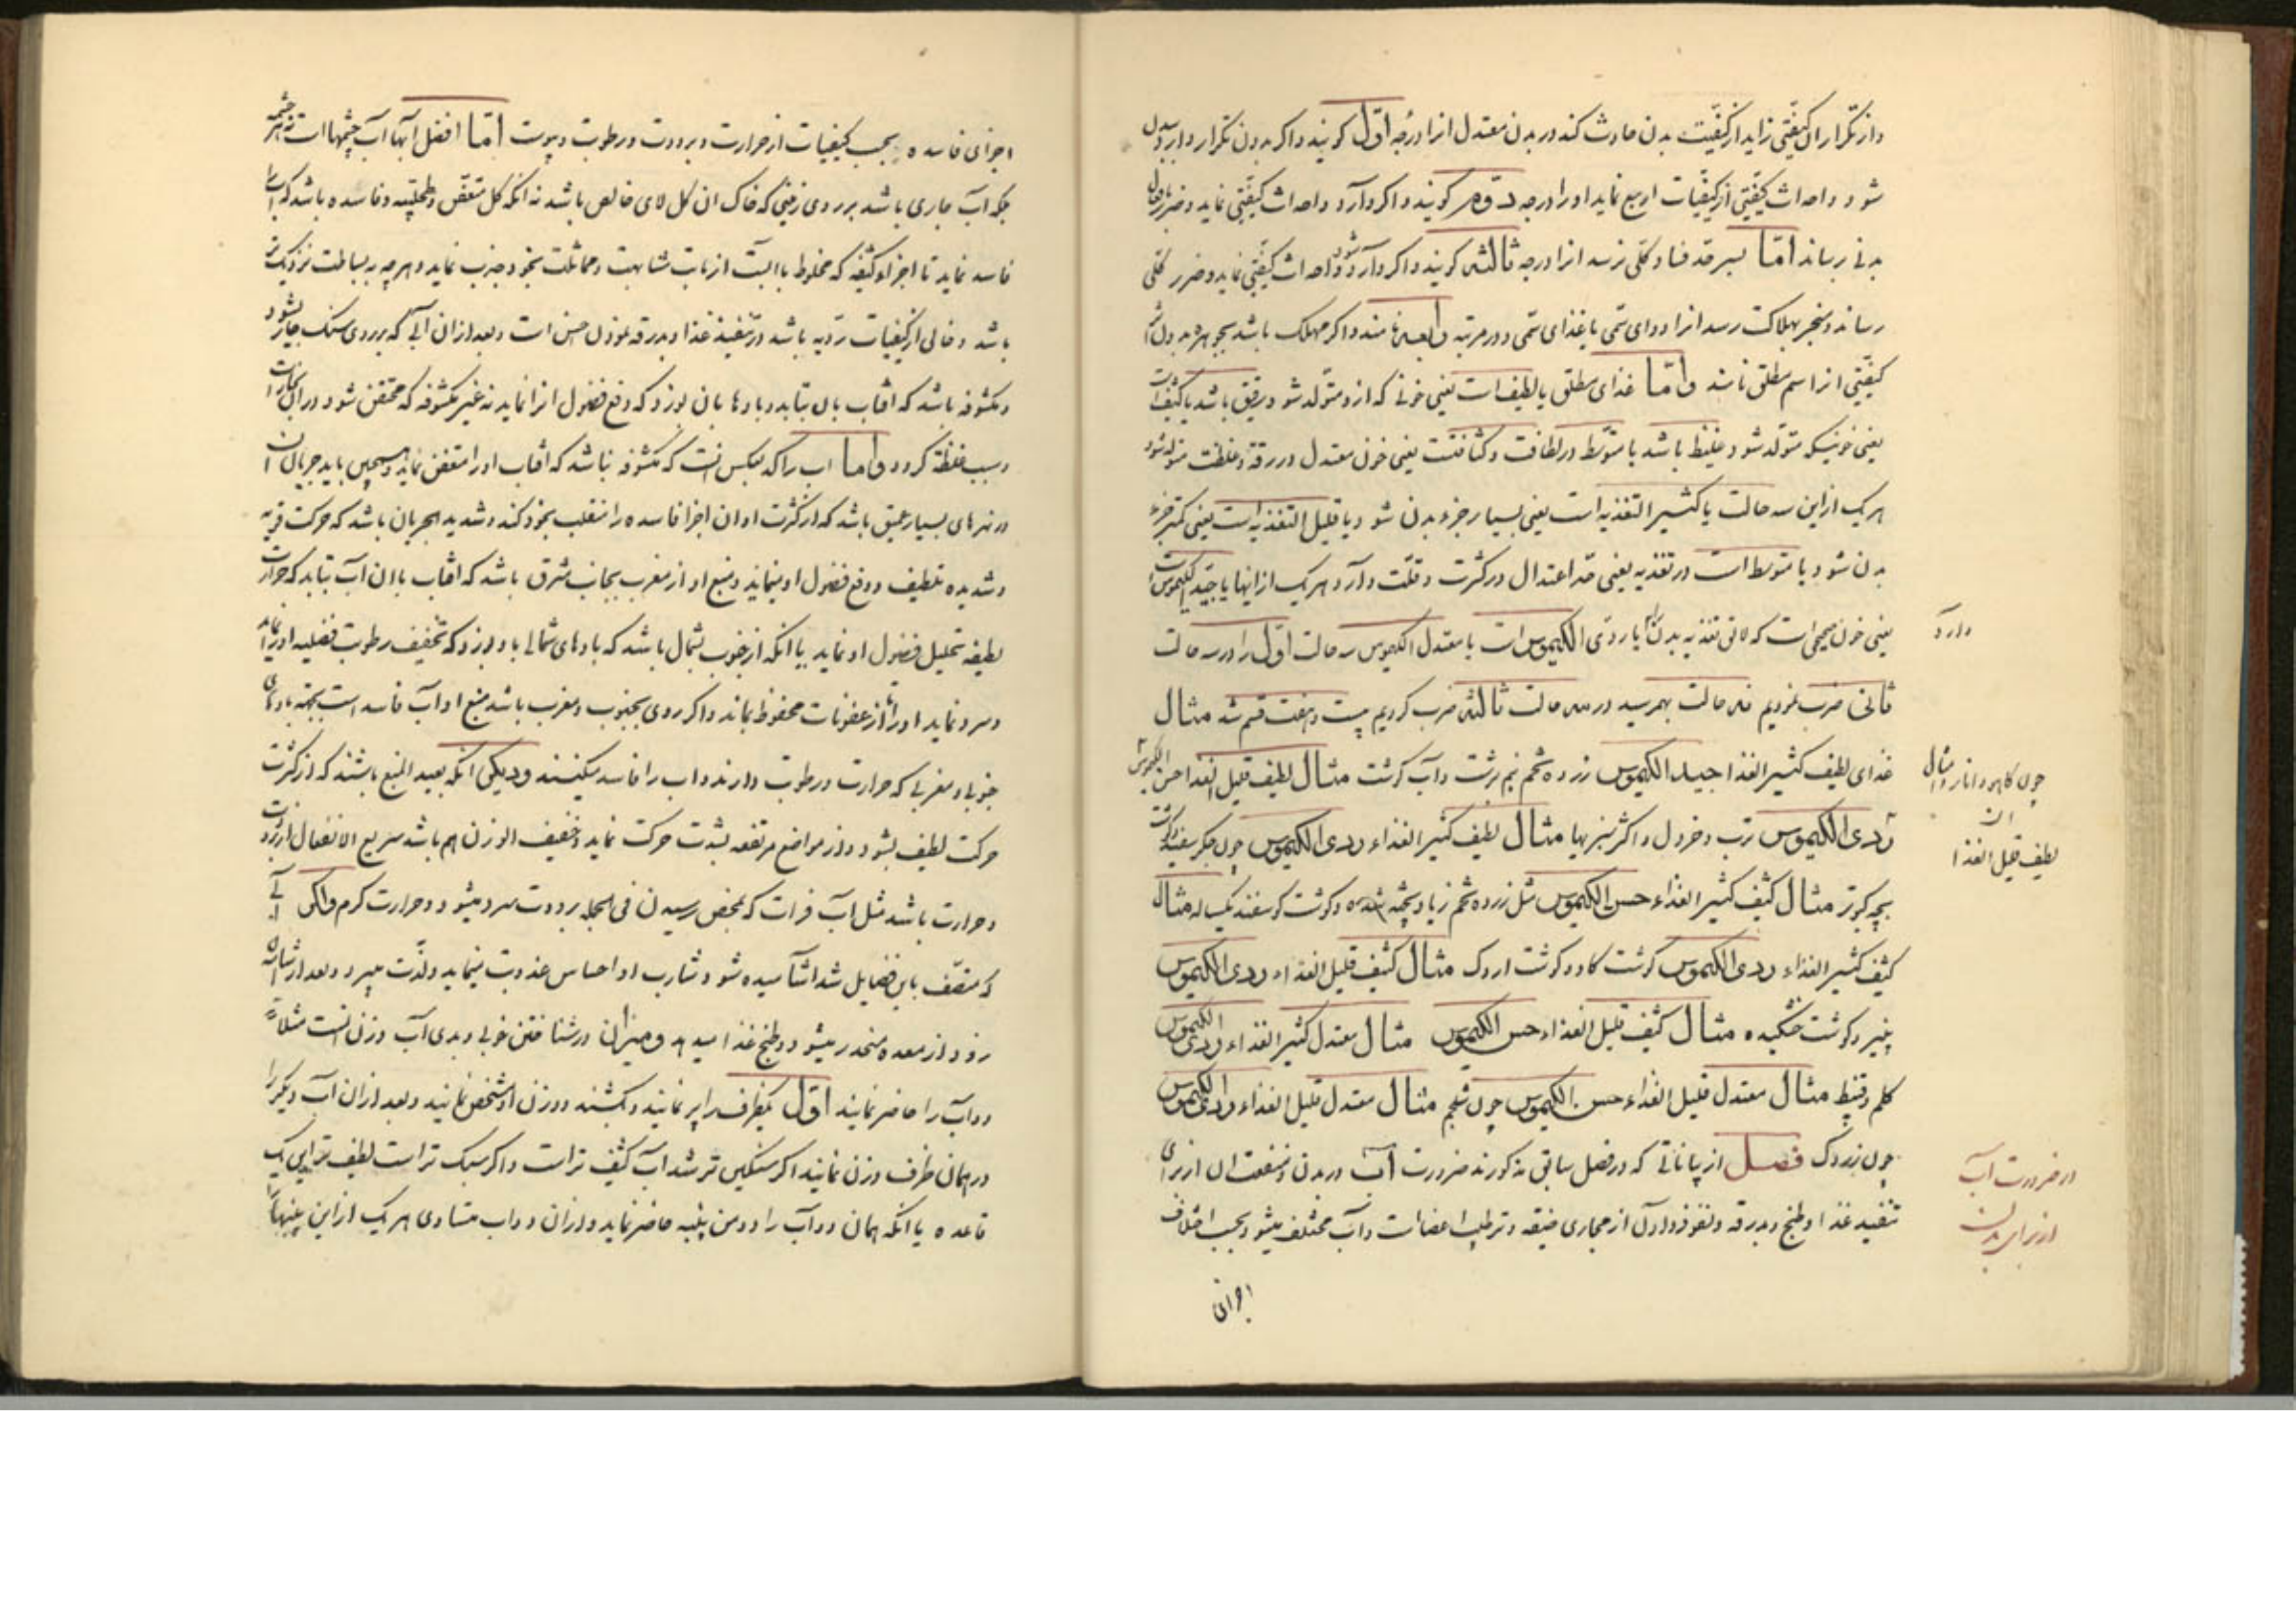 واز تکرار ان کیفیتی زاید از کیفیت بدن حادث کند در بدن معتدل انرا درجه اول کویند واکر بدون تکرار وارد بدن
شود و احداث کیفیتی از کیفیات اربع نماید او را درجه دوم کویند و اکر وارد و احداث کیفیتی نماید و ضرر بافعال
بدنی رساند اما بسرحد فساد کلی نرسد انرا درجه ثالثه کویند و اکر وارد شود و احداث کیفیتی نماید و ضرر کلی
رساند و منجر بهلاکت رسد انرا دوای سمی یا غذای سمی و در مرتبه رابعه نامند و اکر مهلک باشد بجوهره بدون
کیفیتی انرا سم مطلق نامند و اما غذای مطلق یا لطیف است یعنی خونی که ازو متولد شود رقیق باشد یا کثیف است
یعنی خونیکه متولد شود غلیظ باشد یا متوسط در لطافت و کثافتست یعنی خون معتدل در رقة و غلظت متولد شود
هر یک از این سه حالت یا کثیر التغذیه است یعنی بسیار جزء بدن شود و یا قلیل التغذیه است یعنی کمتر جزء
بدن شود یا متوسط است در تغذیه یعنی حد اعتدال در کثرت و قلت دارد هر یک از اینها یا جید الکیموس است
یعنی خون صحیحی است که لایق تغذیه بدن یا ردی الکیموس است یا معتدل الکیموس سه حالت اول را در سه حالت
دارد
ثانی ضرب نمودیم نه حالت بهمرسید در سه حالت ثالثه ضرب کردیم بیست و هفت قسم شد مثال
غذای لطیف کثیر الغذا جید الکیموس زرده تخم نیم برشت و آب کوشت مثال لطیف قلیل الغذا حسن الکیموس
چون کاهو و انار و امثال
ان
لطیف قلیل الغذا
ردی الکیموس ترب و خردل و اکثر سبزیها مثال لطیف کثیر الغذاء ردی الکیموس چون جکر سفید و کوشت
بچه کبوتر مثال کثیف کثیر الغذاء حسن الکیموس مثل زرده تخم زیاد پخته شده و کوشت کوسفند یکساله مثال
کثیف کثیر الغذاء ردی الکیموس کوشت کاو و کوشت اردک مثال کثیف قلیل الغذاء ردی الکیموس
پنیر و کوشت خشکیده مثال کثیف قلیل الغذاء حسن الکیموس مثال معتدل کثیر الغذاء ردی الکیموس
کلم و قنبیط مثال معتدل قلیل الغذاء حسن الکیموس چون شلجم مثال معتدل قلیل الغذاء ردی الکیموس
چون زردک فصل از بیاناتی که در فصل سابق مذکور شد ضرورت آب در بدن و منفعت ان از برای
در ضرورت آب
از برای بدن
تنفیذ غذا و طبخ و بدرقه و نفوذ دادن از مجاری ضیقه و ترطیب اعضا است و آب مختلف میشود بحسب اختلاف
اجزای
اجزای فاسده و بحسب کیفیات از حرارت و برودت و رطوبت و یبوست اما افضل آبها آب چشمها است نه هر چشمه
بلکه آب جاری باشد بر روی زمینی که خاک ان کل لای خالص باشد نه انکه کل متعفن و طحلبیه و فاسده باشد که آب را
فاسد نماید تا اجزاء کثیفه که مخلوط با آبست از بابت مشابهت و مماثلت بخود جذب نماید و هر چه به بساطت نزدیکتر
باشد و خالی از کیفیات ردیه باشد در تنفیذ غذا و بدرقه نمودن احسن است و بعد از ان آبی که بر روی سنک جاری شود
و مکشوفه باشد که افتاب بان بتابد و بادها بان بوزد که دفع فضول انرا نماید نه غیر مکشوفه که محتقن شود در ان بخارات
و سبب غلظة کردد و اما آب راکد بعکس انست که مکشوفه نباشد که افتاب او را متعفن نماید و همچنین باید جریان ان
در نهرهای بسیار عمیق باشد که از کثرت او ان اجزا فاسده را منقلب بخود کند و شدید الجریان باشد که حرکت قویه
و شدیده تلطیف و دفع فضول او مینماید و منبع او از مغرب بجانب مشرق باشد که افتاب با ان آب بتابد که حرارت
لطیفه تحلیل فضول او نماید یا انکه از جنوب بشمال باشد که بادهای شمالی باو بوزد که تخفیف رطوبت فضلیه او را نماید
و سرد نماید او را تا از عفونات محفوظ بماند و اکر روی بجنوب و مغرب باشد منبع او آب فاسد است بجهة بادهای
جنوبی و مغربی که حرارت و رطوبت دارند و اب را فاسد میکنند و دیکر انکه بعید المنبع باشند که از کثرت
حرکت لطیف بشود و از مواضع مرتفعه بشدت حرکت نماید و خفیف الوزن هم باشد سریع الانفعال از برودت
و حرارت باشد مثل آب فرات که بمحض رسیدن فی الجمله برودت سرد میشود و حرارت کرم و اکر آبی
که متصف باین فضایل شد اشامیده شود شارب او احساس عذوبت مینماید و لذت میبرد و بعد از اشامیدن
زود از معده منحدر میشود و طبخ غذا میدهد و میزان در شناختن خوبی و بدی آب وزن انست مثلا
دو آب را حاضر نمایند اول یکظرف را پر نمایند و بکشند و وزن او مشخص نمایند و بعد از ان آب دیکر را
در همان ظرف وزن نمایند اکر سنکین تر شد آب کثیف تر است و اکر سبک تر است لطیف تر این یک
قاعده یا انکه همان دو آب را و دو من پنبه حاضر نماید و از ان دو اب متساوی هر یک از این پنبها را